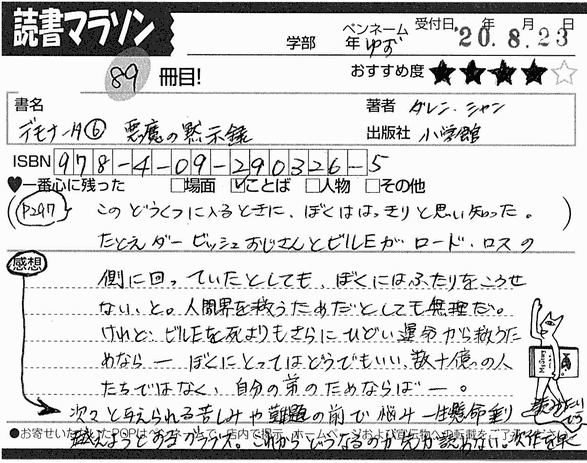 読書マラソン
学部 年 ペンネーム ゆず 受付日 '20.年 8.月 23日
89 冊目!
おすすめ度 ★★★★☆
書名 著者 ダレン・シャン
デモナータ⑥ 悪魔の黙示録 出版社 小学館
ISBN 978-4-09-290326-5
♥一番心に残った □場面 ☑ことば □人物 □その他
(P247 このどうくつに入るときに、ぼくははっきりと思い知った。)
たとえダービッシュおじさんとビルEがロード・ロスの
感想
側に回っていたとしても、ぼくにはふたりをころせ
ない、と。人間界を救うためだとしても無理だ。
けれど、ビルEを死よりもさらにひどい運命から救うた
めなら ― ぼくにとってはどうでもいい、数十億の人
たちではなく、自分の弟のためならば ―。
次々と与えられる苦しみや難題の前で悩み一生懸命乗り
越えようとするグラブス。これからどうなるのか先が読めない。次作を早く
読みたいです
●お寄せいただいたPOPはペンネームで、店内で掲示、ホームページおよび宣伝物への転載をご了承ください